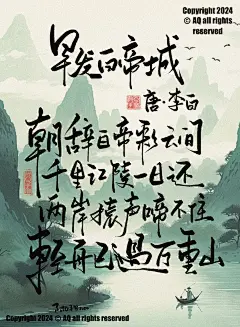 Copyright 2024
© AQ all rights
reserved
早发白帝城
唐·李白
朝辞白帝彩云间
千里江陵一日还
两岸猿声啼不住
轻舟已过万重山
Copyright 2024 © AQ all rights reserved